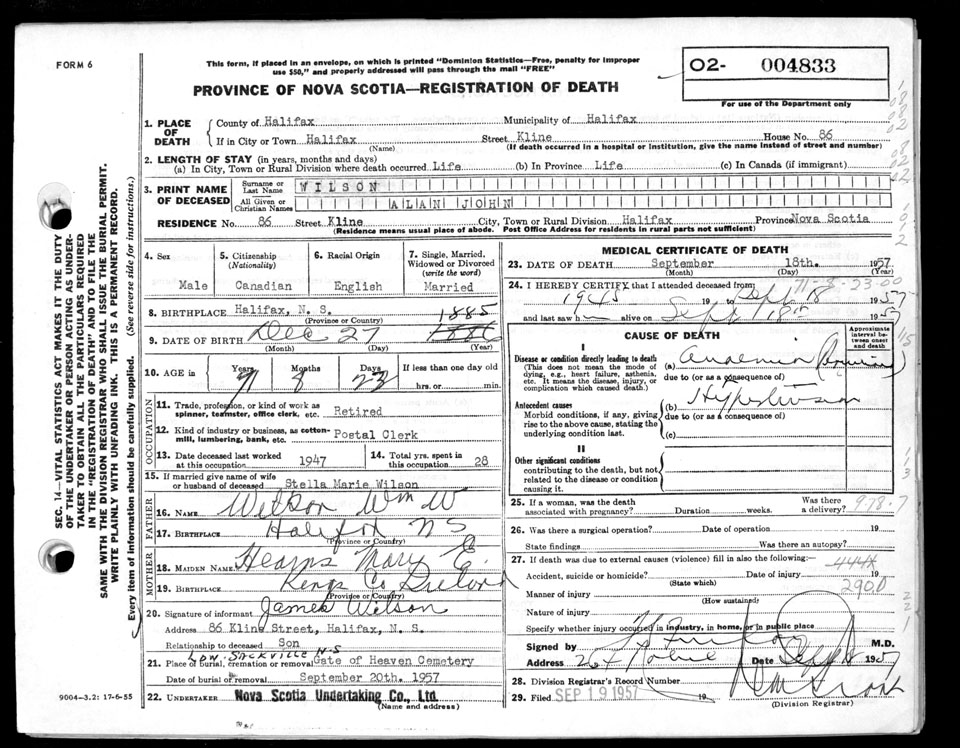 FORM 6
This form, if placed in an envelope, on which is printed "Dominion Statistics—Free, penalty for improper
use $50," and properly addressed will pass through the mail "FREE"
PROVINCE OF NOVA SCOTIA—REGISTRATION OF DEATH
O2- 004833
For use of the Department only
1. PLACE OF DEATH
County of Halifax Municipality of Halifax
If in City or Town Halifax Street Kline House No. 86
(Name) (If death occurred in a hospital or institution, give the name instead of street and number)
2. LENGTH OF STAY (in years, months and days)
(a) In City, Town or Rural Division where death occurred Life (b) In Province Life (c) In Canada (if immigrant)
3. PRINT NAME OF DECEASED
Surname or Last Name WILSON
All Given or Christian Names ALAN JOHN
RESIDENCE No. 86 Street Kline City, Town or Rural Division Halifax Province Nova Scotia
(Residence means usual place of abode. Post Office Address for residents in rural parts not sufficient)
SEC. 14—VITAL STATISTICS ACT MAKES IT THE DUTY
OF THE UNDERTAKER OR PERSON ACTING AS UNDER-
TAKER TO OBTAIN ALL THE PARTICULARS REQUIRED
IN THE "REGISTRATION OF DEATH" AND TO FILE THE
SAME WITH THE DIVISION REGISTRAR WHO SHALL ISSUE THE BURIAL PERMIT.
WRITE PLAINLY WITH UNFADING INK. THIS IS A PERMANENT RECORD.
Every item of information should be carefully supplied. (See reverse side for instructions.)
4. Sex
Male
5. Citizenship
(Nationality)
Canadian
6. Racial Origin
English
7. Single, Married,
Widowed or Divorced
(write the word)
Married
8. BIRTHPLACE Halifax, N. S.
(Province or Country)
1885
9. DATE OF BIRTH Dec 27 1886
(Month) (Day) (Year)
10. AGE in Years Months Days If less than one day old
71 8 23 hrs. or min.
OCCUPATION
11. Trade, profession, or kind of work as
spinner, teamster, office clerk, etc. Retired
12. Kind of industry or business, as cotton-
mill, lumbering, bank, etc. Postal Clerk
13. Date deceased last worked
at this occupation 1947
14. Total yrs. spent in
this occupation 28
15. If married give name of wife
or husband of deceased Stella Marie Wilson
FATHER
16. NAME Wilson Wm W
17. BIRTHPLACE Halifax NS
(Province or Country)
MOTHER
18. MAIDEN NAME Hearns Mary E
19. BIRTHPLACE Kings Co Ireland
(Province or Country)
20. Signature of informant James Wilson
Address 86 Kline Street, Halifax, N. S.
Relationship to deceased Son
LOW. SACKVILLE N-S
21. Place of burial, cremation or removal Gate of Heaven Cemetery
Date of burial or removal September 20th. 1957
22. UNDERTAKER Nova Scotia Undertaking Co., Ltd.
(Name and address)
9004-3.2: 17-6-55
MEDICAL CERTIFICATE OF DEATH
23. DATE OF DEATH September 18th. 1957
(Month) (Day) (Year)
24. I HEREBY CERTIFY that I attended deceased from
1945 19 to Sept 18 1957
and last saw h alive on Sept 18th 1957
CAUSE OF DEATH
Approximate interval between onset and death
I
Disease or condition directly leading to death
(This does not mean the mode of
dying, e.g., heart failure, asthenia,
etc. It means the disease, injury, or
complication which caused death.)
(a) Anaemia
due to (or as a consequence of)
Antecedent causes
Morbid conditions, if any, giving
rise to the above cause, stating the
underlying condition last.
(b) Hypertension
due to (or as a consequence of)
(c)
II
Other significant conditions
contributing to the death, but not
related to the disease or condition
causing it.
25. If a woman, was the death
associated with pregnancy? Duration weeks. Was there a delivery?
978-7
26. Was there a surgical operation? Date of operation 19
State findings Was there an autopsy?
27. If death was due to external causes (violence) fill in also the following:
Accident, suicide or homicide? Date of injury 19
(State which)
444X
Manner of injury 290.0
(How sustained)
Nature of injury
Specify whether injury occurred in industry, in home, or in public place
Signed by M.D.
Address Date Sept 18 1957
28. Division Registrar's Record Number
29. Filed SEP 19 1957 19
(Division Registrar)